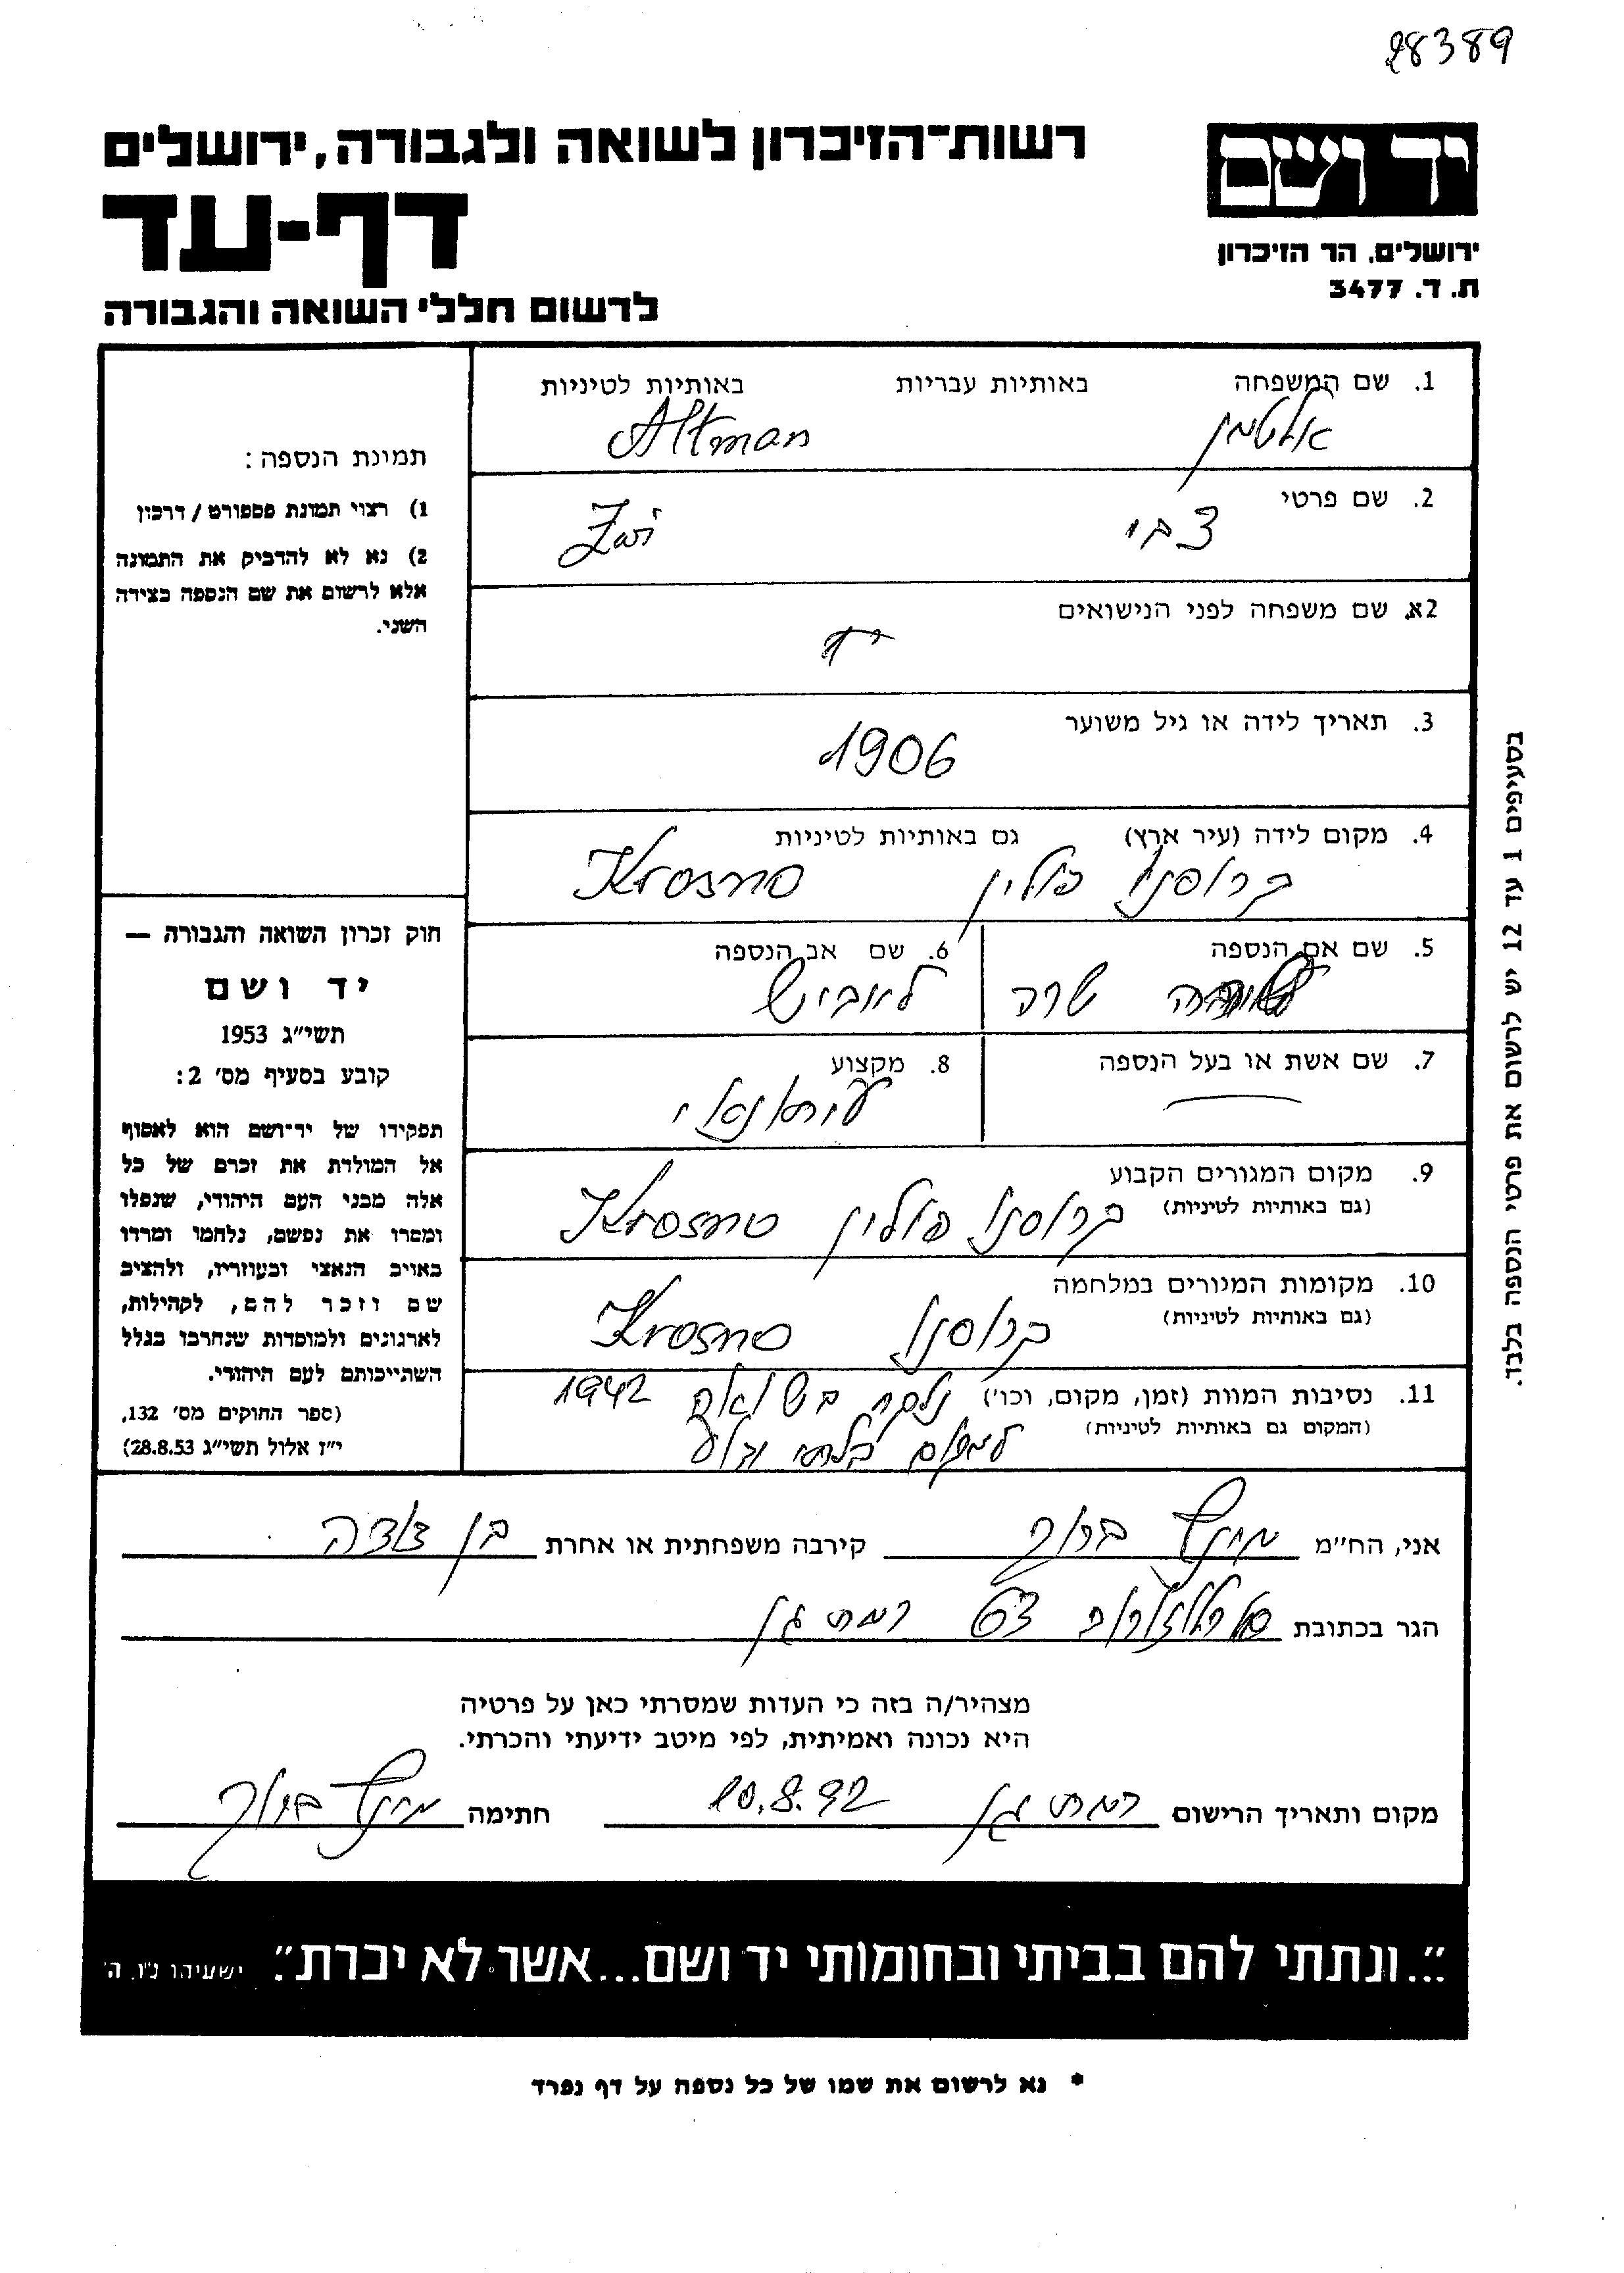 28389
יד ושם
ירושלים, הר הזיכרון
ת. ד. 3477
רשות-הזיכרון לשואה ולגבורה, ירושלים
דף-עד
לרשום חללי השואה והגבורה
1. שם המשפחה באותיות עבריות באותיות לטיניות
אלטמן Altman
2. שם פרטי
צבי Zwi
2א. שם משפחה לפני הנישואים
3. תאריך לידה או גיל משוער
1906
4. מקום לידה (עיר ארץ) גם באותיות לטיניות
קרוסנו פולין Krosno
5. שם אם הנספה
שרה
6. שם אב הנספה
לייביש
7. שם אשת או בעל הנספה
8. מקצוע
9. מקום המגורים הקבוע
(גם באותיות לטיניות)
קרוסנו פולין Krosno
10. מקומות המגורים במלחמה
(גם באותיות לטיניות)
קרוסנו Krosno
11. נסיבות המוות (זמן, מקום, וכו׳) נספה בשואה 1942
(המקום גם באותיות לטיניות)
במקום בלתי ידוע
תמונת הנספה:
1) רצוי תמונת פספורט / דרכון
2) נא לא להדביק את התמונה
אלא לרשום את שם הנספה בצידה
השני.
חוק זכרון השואה והגבורה —
יד ושם
תשי״ג 1953
קובע בסעיף מס׳ 2:
תפקידו של יד-ושם הוא לאסוף
אל המולדת את זכרם של כל
אלה מבני העם היהודי, שנפלו
ומסרו את נפשם, נלחמו ומרדו
באויב הנאצי ובעוזריו, ולהציב
שם וזכר להם, לקהילות,
לארגונים ולמוסדות שנחרבו בגלל
השתייכותם לעם היהודי.
(ספר החוקים מס׳ 132,
י״ז אלול תשי״ג 28.8.53)
בסעיפים 1 עד 12 יש לרשום את פרטי הנספה בלבד.
אני, הח״מ מינץ ברוך קירבה משפחתית או אחרת בן דודה
הגר בכתובת ארלוזורוב 63 רמת גן
מצהיר/ה בזה כי העדות שמסרתי כאן על פרטיה
היא נכונה ואמיתית, לפי מיטב ידיעתי והכרתי.
מקום ותאריך הרישום רמת גן 10.8.92 חתימה מינץ ברוך
״...ונתתי להם בביתי ובחומותי יד ושם...אשר לא יכרת״. ישעיהו נ״ו, ה׳
* נא לרשום את שמו של כל נספה על דף נפרד